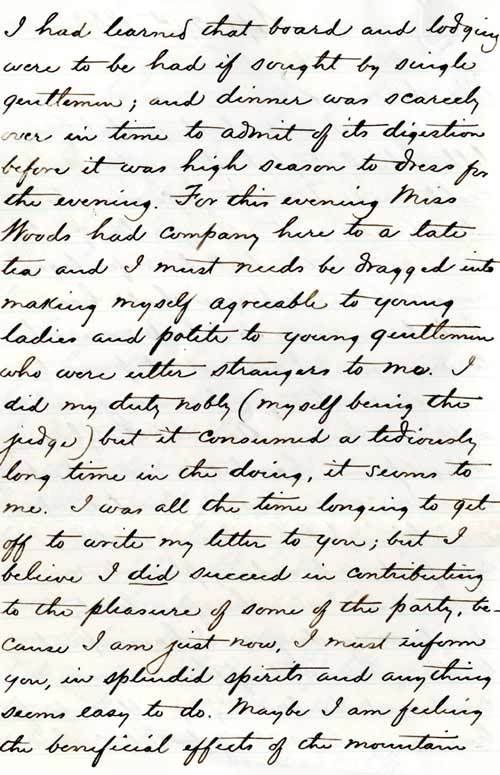 I had learned that board and lodging
were to be had if sought by single
gentlemen; and dinner was scarcely
over in time to admit of its digestion
before it was high season to dress for
the evening. For this evening Miss
Woods had company here to a late
tea and I must needs be dragged into
making myself agreeable to young
ladies and polite to young gentlemen
who were utter strangers to me. I
did my duty nobly (myself being the
judge) but it consumed a tediously
long time in the doing, it seems to
me. I was all the time longing to get
off to write my letter to you; but I
believe I did succeed in contributing
to the pleasure of some of the party, be-
cause I am just now, I must inform
you, in splendid spirits and anything
seems easy to do. Maybe I am feeling
the beneficial effects of the mountain